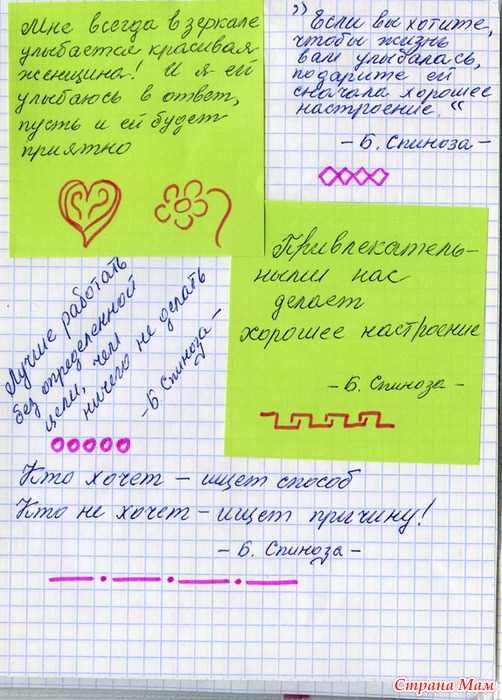 Мне всегда в зеркале
улыбается красивая
женщина! И я ей
улыбаюсь в ответ,
пусть и ей будет
приятно
„Если вы хотите,
чтобы жизнь
вам улыбалась,
подарите ей
сначала хорошее
настроение.“
- Б. Спиноза -
Привлекатель-
ными нас
делает
хорошее настроение
- Б. Спиноза -
Лучше работать
без определенной
цели, чем
ничего не делать
- Б Спиноза -
Кто хочет - ищет способ
Кто не хочет - ищет причину!
- Б. Спиноза -
Страна Мам